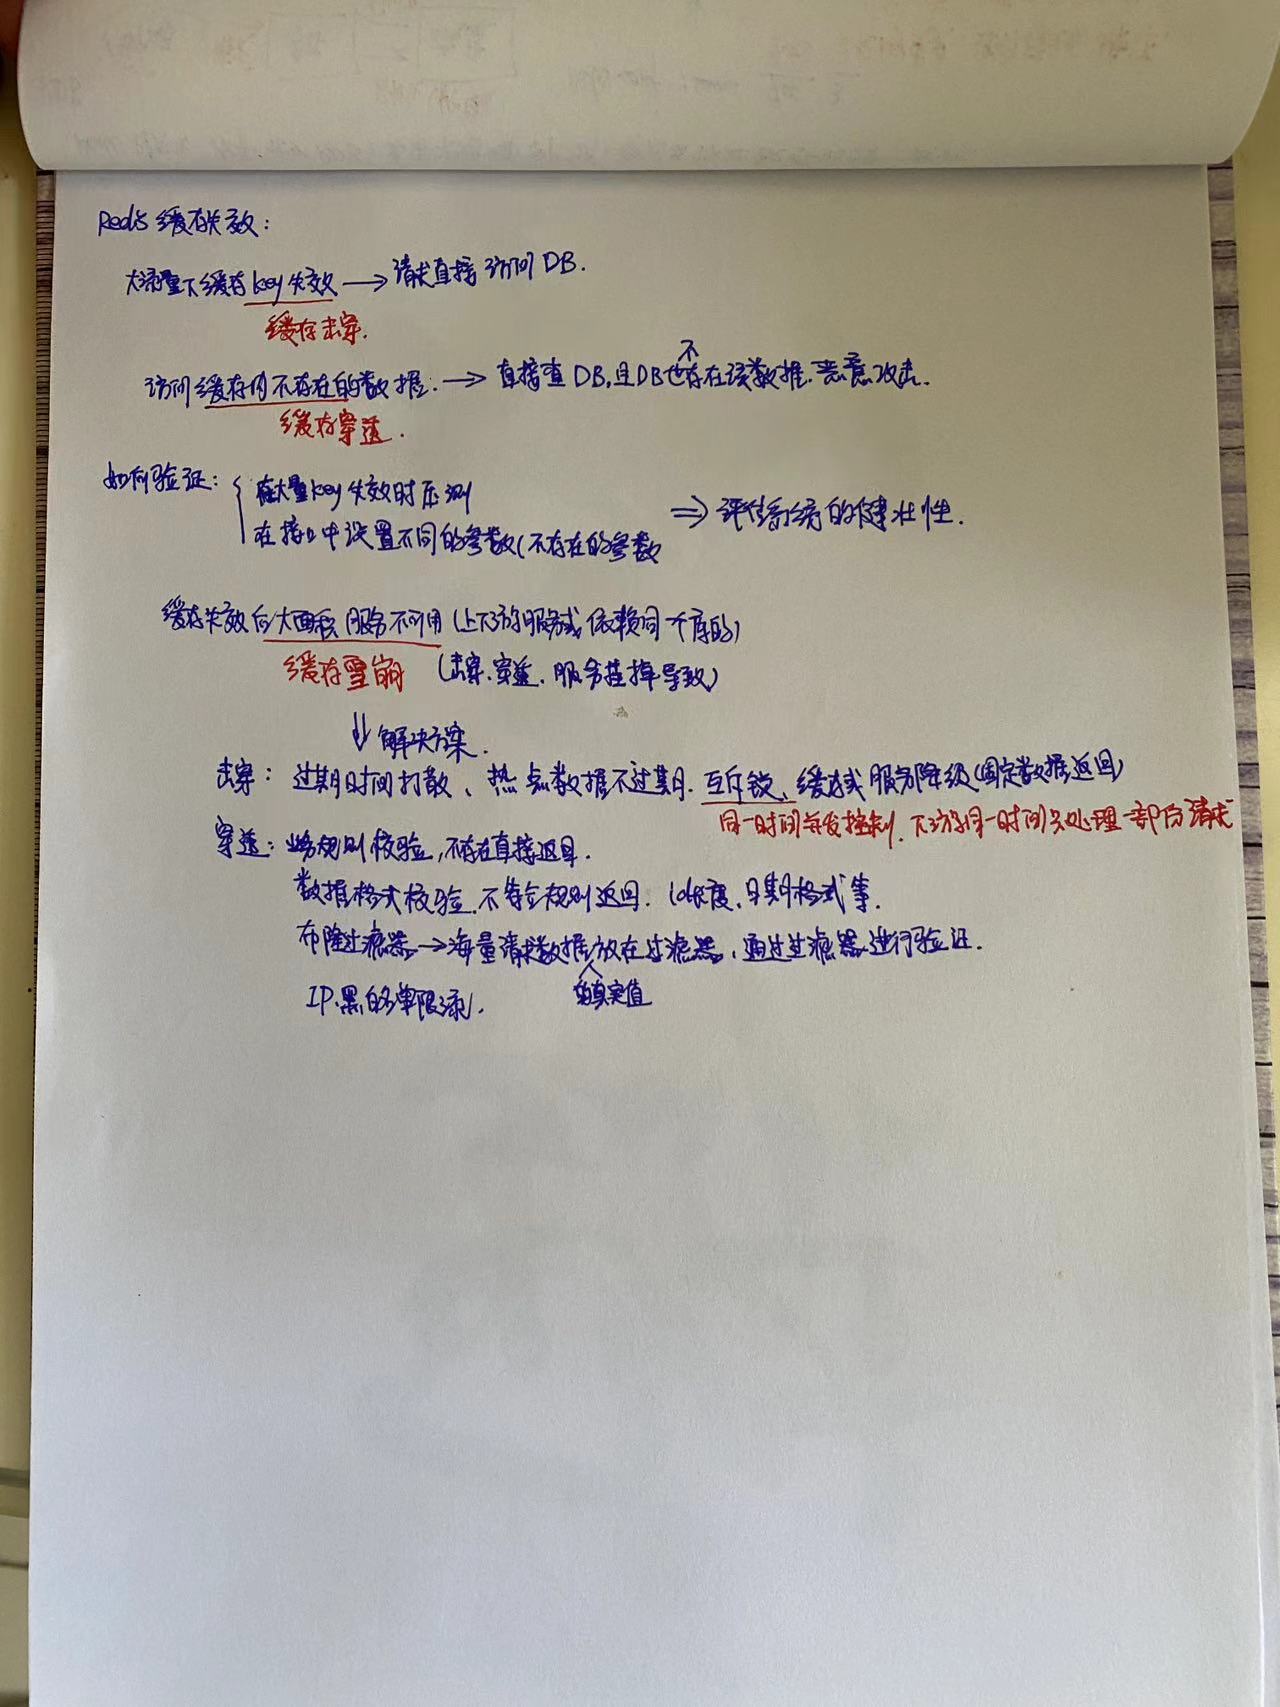 Redis缓存失效：
大流量下缓存key失效 → 请求直接访问DB.
缓存击穿.
访问缓存内不存在的数据. → 直接查DB,且DB也不存在该数据.恶意攻击.
缓存穿透.
如何验证： { 在大量key失效时压测
在接口中设置不同的参数(不存在的参数 ⇒ 评估系统的健壮性.
缓存失效后大面积服务不可用(上下游的服务或依赖同一个库的)
缓存雪崩 (击穿.穿透.服务挂掉导致)
⇓ 解决方案.
击穿： 过期时间打散、热点数据不过期.互斥锁、缓存或服务降级(固定数据返回)
同一时间并发控制.下游同一时间只处理一部分请求
穿透：业务规则校验,不存在直接返回.
数据格式校验.不符合规则返回.(id长度.日期格式等.
布隆过滤器→海量请求数据的真实值放在过滤器,通过过滤器进行验证.
IP.黑名单限流.